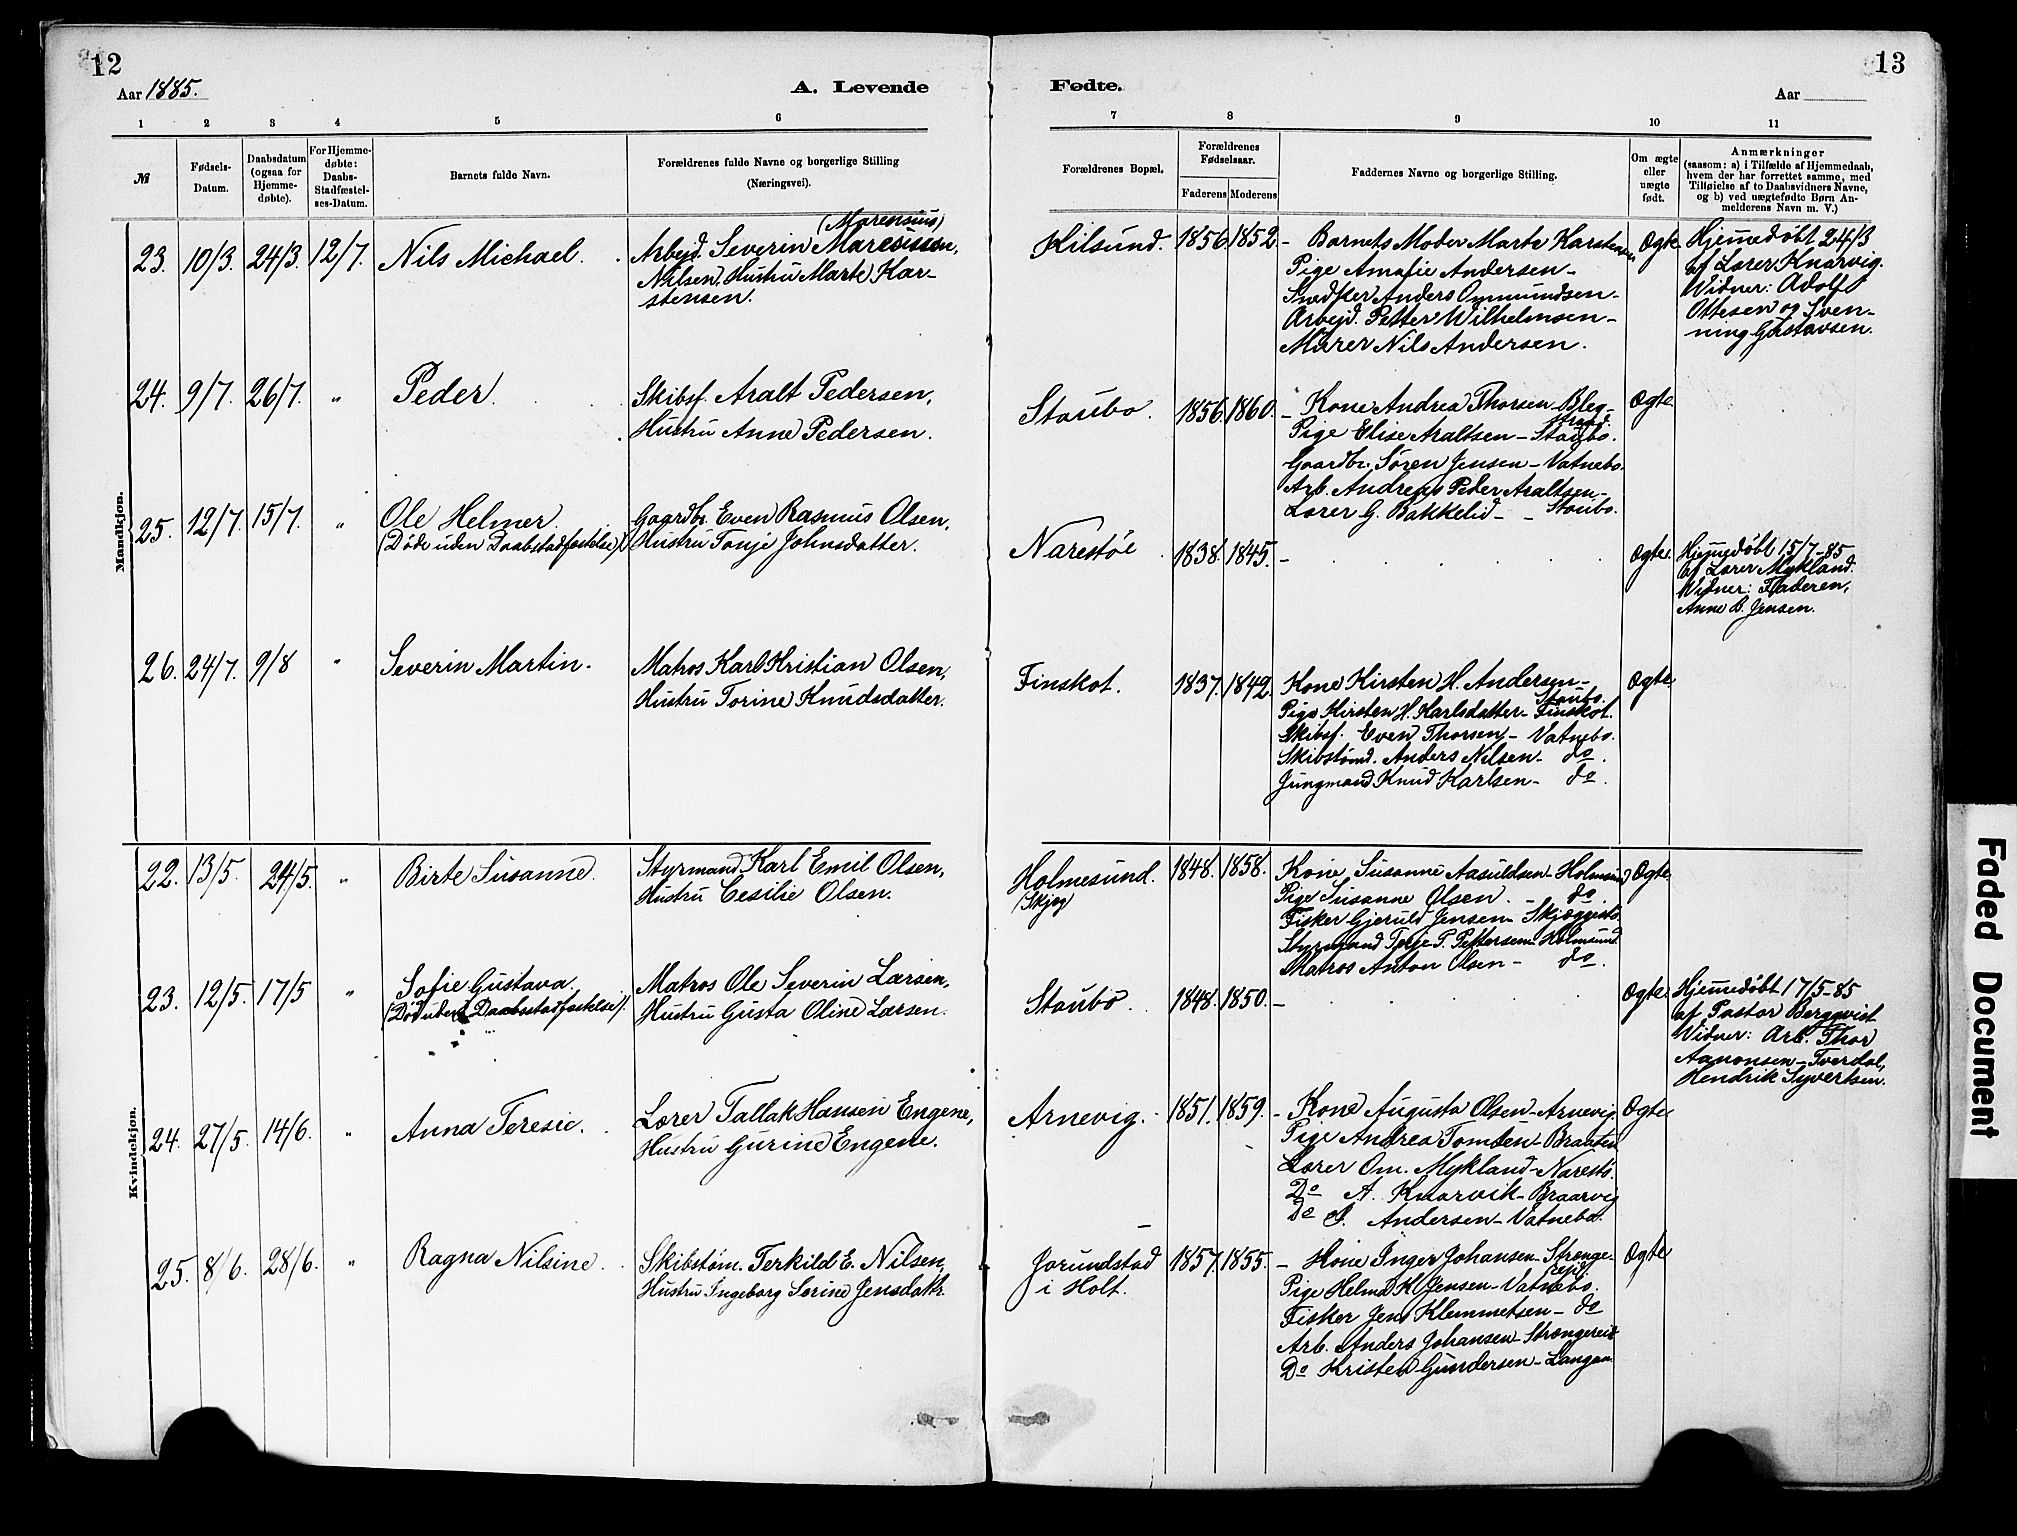 12
Aar 1885.
A. Levende
1 2 3 4 5 6
№
Fødsels-
Datum.
Daabsdatum
(ogsaa for
Hjemme-
døbte).
For Hjemme-
døbte:
Daabs-
Stadfæstel-
ses-Datum.
Barnets fulde Navn.
Forældrenes fulde Navne og borgerlige Stilling
(Næringsvei).
Mandkjøn.
23. 10/3. 24/3. 12/7. Nils Michael.
(Marensius)
Arbejd. Severin
Nilsen, Hustru Marte Kar-
stensen.
24. 9/7. 26/7. " Peder.
Skibsf. Aralt Pedersen,
Hustru Anne Pedersen.
25. 12/7. 15/7. " Ole Helmer.
(Døde uden Daabstadfæstelse).
Gaardbr. Even Rasmus Olsen,
Hustru Tonje Johnsdatter.
26. 24/7. 9/8 " Severin Martin.
Matros Karl Kristian Olsen,
Hustru Torine Knudsdatter.
Kvindekjøn.
22. 13/5. 24/5. " Birte Susanne.
Styrmand Karl Emil Olsen,
Hustru Cesilie Olsen.
23. 12/5. 17/5 " Sofie Gustava.
(Død uden Daabsstadfæstelse).
Matros Ole Severin Larsen,
Hustru Gusta Oline Larsen.
24. 27/5. 14/6. " Anna Teresie.
Lærer Tallak Hansen Engene,
Hustru Gurine Engene.
25. 8/6. 28/6. " Ragna Nilsine.
Skibstøm. Terkild E. Nilsen,
Hustru Ingeborg Serine Jensdattr.
13
Fødte.
Aar
7 8 9 10 11
Forældrenes Bopæl.
Forældrenes
Fødselsaar.
Faderens Moderens
Faddernes Navne og borgerlige Stilling.
Om ægte
eller
uægte
født.
Anmærkninger
(saasom: a) i Tilfælde af Hjemmedaab,
hvem der har forrettet samme, med
Tilføielse af to Daabsvidners Navne,
og b) ved uægtefødte Børn An-
melderens Navn m. V.)
Kilsund. 1856. 1852. - Barnets Moder Marte Karstensen
Pige Amalie Andersen -
Snedker Anders Ommundsen -
Arbejd. Petter Wilhelmsen -
Murer Nils Andersen.
Ægte
Hjemmedøbt 24/3
af Lærer Knarvig.
Widner: Adolf
Ottesen og Sven-
ning Gustavsen.
Staubo. 1856. 1860. - Kone Andrea Thorsen - Bleg-
strand.
Pige Elise Araltsen - Staubo.
Gaardbr. Søren Jensen - Vatnebo.
Arb. Andreas Peder Araltsen -
Lærer G. Bakkelid - - Staubo.
Ægte
Narestøe 1838. 1845. -
Ægte.
Hjemmedøbt 15/7-85
af Lærer Mykland.
Widner: Faderen,
Anne B. Jensen.
Finskot. 1837. 1842. Kone Kirsten H. Andersen -
Staubo.
Pige Kirsten H. Karlsdatter - Finskot.
Skibsf. Even Thorsen - Vatnebo.
Skibstømd. Anders Nilsen - do.
Jungmand Knud Karlsen - do.
Ægte
Holmesund. 1848. 1858. Kone Susanne Aasuldsen - Holmsund
(Skjæg)
Pige Susanne Olsen. - do.
Fisker Gjeruld Jensen - Skjæggestø
Styrmand Terje P. Pettersen - Holmsund.
Matros Anton Olsen - do.
Ægte
Staubo. 1848. 1850. -
Ægte.
Hjemmedøbt 17/5-85
af Pastor Bergqvist
Vidner: Arb. Thor
Aanonsen - Tverdal,
Hendrik Syvertsen.
Arnevig. 1851. 1859. - Kone Augusta Olsen - Arnevig.
Pige Andrea Tomsen - Braaten
Lærer Om. Mykland - Narestø.
Do A. Knarvik - Braarvig
Do Andersen - Vatnebo.
Ægte
Jorundstad
i Holt.
1857. 1855. - Kone Inger Johansen - Strænge-
rejd.
Pige Helma K. Jensen - Vatnebo.
Fisker Jens Klemmetsen - do
Arb. Anders Johansen - Strængereid
Do Kristen Gundersen - Langan.
Ægte
Faded Document